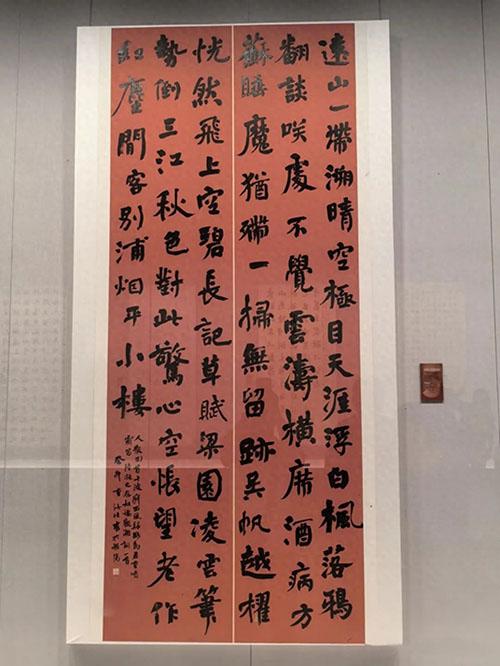 遠山一帶溯晴空極目天涯浮白楓落鴉
翻談咲處不覺雲濤橫席酒病方
蘇睡魔猶殢一掃無留跡吳帆越櫂
恍然飛上空碧長記草賦梁園凌雲筆
勢倒三江秋色對此驚心空悵望老作
紅塵閒客別浦烟平小樓
人散回首千波寂西風歸路為君重噴
霜笛